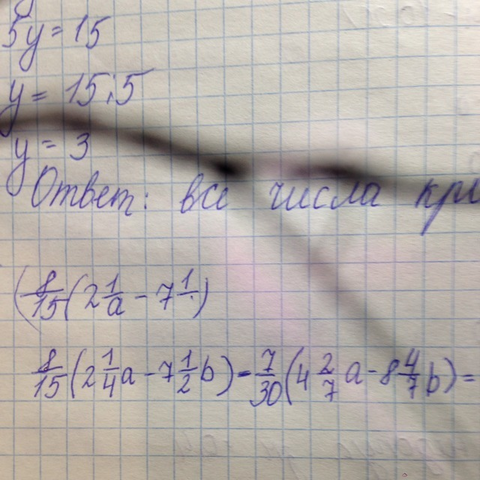 5y = 15
y = 15:5
y = 3
Ответ: все числа кр
(8/15(2 1/a - 7 1/.)
8/15(2 1/4a - 7 1/2b) - 7/30(4 2/7a - 8 4/7b) =